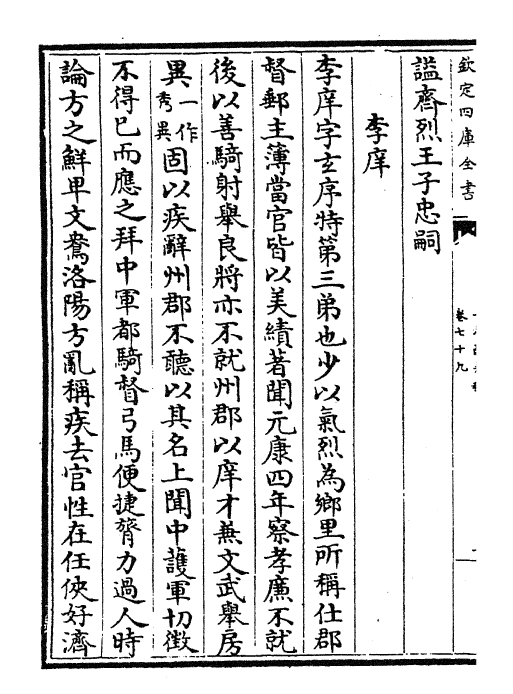 欽定四庫全書
卷七十九
謚齊烈王子忠嗣
李庠
李庠字玄序特第三弟也少以氣烈為鄉里所稱仕郡
督郵主簿當官皆以美績著聞元康四年察孝廉不就
後以善騎射舉良將亦不就州郡以庠才兼文武舉房
異一作秀異固以疾辭州郡不聽以其名上聞中護軍切徴
不得已而應之拜中軍都騎督弓馬便捷膂力過人時
論方之鮮卑文鴦洛陽方亂稱疾去官性在任俠好濟